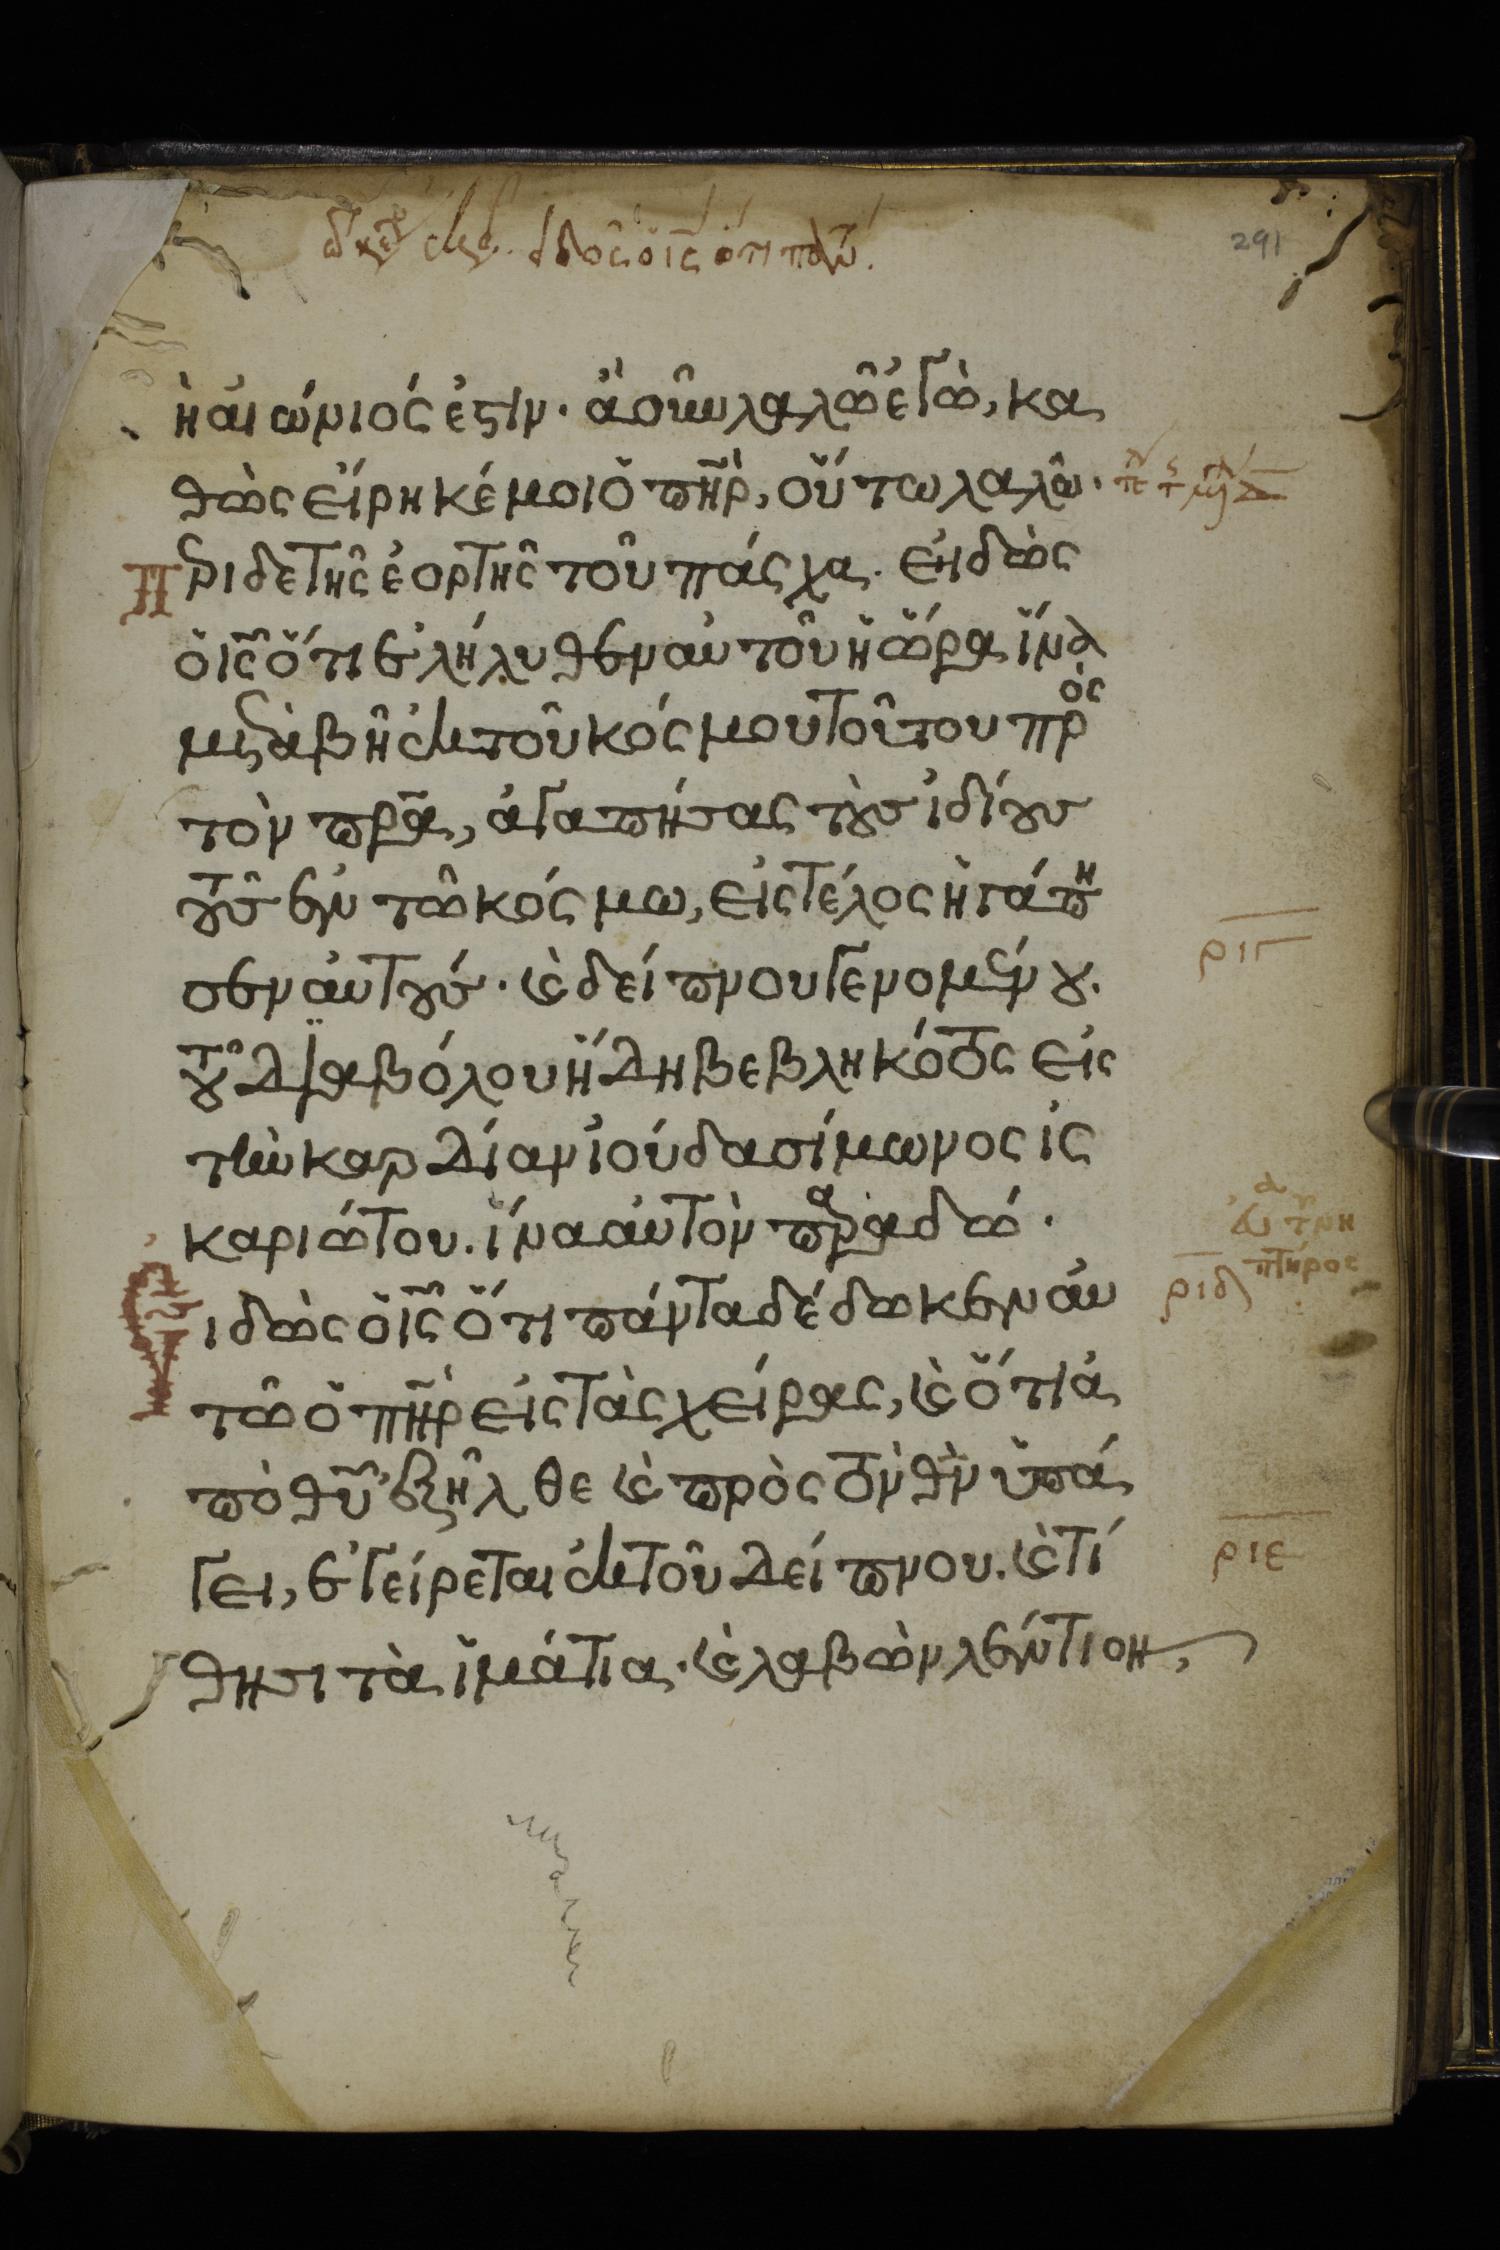 291
ἠ αἰώνιός ἐστιν· ἃ οὖν λαλῶ ἐγὼ, κα
θὼς εἴρηκέ μοι ὁ π̅η̅ρ̅, οὕτω λαλῶ·
Πρι δε τῆς ἑορτῆς τοῦ πάσχα. εἰδὼς
ὁ ι̅ς̅ ὅτι ἐλήλυθεν αὐτοῦ ἡ ὥρα ἵνα
μεταβῆ ἐκ τοῦ κόσμου τούτου πρὸς
τὸν π̅ρ̅α̅, ἀγαπήσας τοὺς ἰδίους
τοὺς ἐν τῶ κόσμω, εἰς τέλος ἠγάπη
σεν αὐτούς· καὶ δείπνου γενομένου.
τοῦ διαβόλου ἤδη βεβληκότος εἰς
τὴν καρδίαν ἰούδα σίμωνος ἰς
καριώτου. ἵνα αὐτὸν παραδώ·
Εἰδὼς ὁ ι̅ς̅ ὅτι πάντα δέδωκεν αὐ
τῶ ὁ π̅η̅ρ̅ εἰς τὰς χείρας, καὶ ὅτι ἀ
πὸ θ̅υ̅ ἐξῆλθε καὶ πρὸς τὸν θ̅ν̅ ὑπά
γει, ἐγείρεται ἐκ τοῦ δείπνου. καὶ τί
θησι τὰ ἱμάτια· καὶ λαβὼν λέντιον,
ρ̅ι̅γ̅
ρ̅ι̅δ̅
ρ̅ι̅ε̅